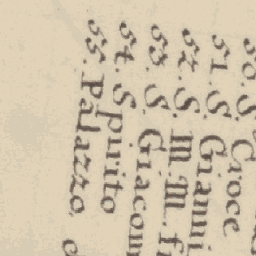 50. S. Croce
51. S. Gianni
52. S. M. M.
53. S. Giacom
54. Spirito
55. Palazzo.